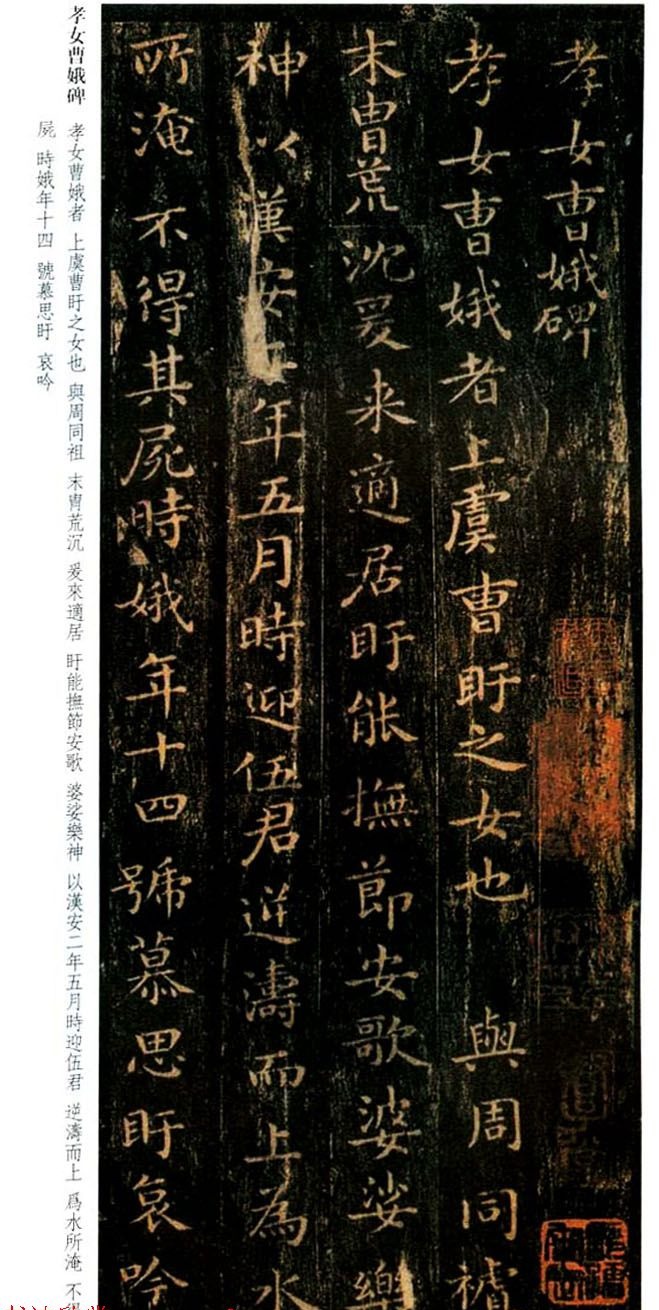 孝女曹娥碑
孝女曹娥者上虞曹盱之女也 與周同
末胄荒沈爰来適居盱能撫節安歌婆娑樂
神以漢安二年五月時迎伍君逆濤而上為水
所淹 不得其屍時娥年十四號慕思盱哀吟
孝女曹娥碑
孝女曹娥者 上虞曹盱之女也 與周同祖 末胄荒沉 爰來適居 盱能撫節安歌 婆娑樂神 以漢安二年五月時迎伍君 逆濤而上 爲水所淹 不得
屍 時娥年十四 號慕思盱 哀吟